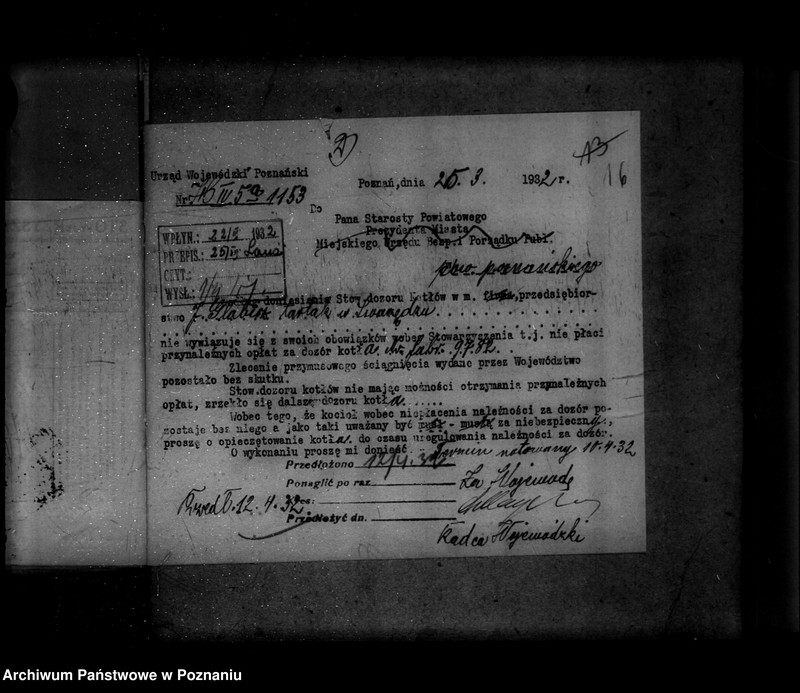 2)
16
Urząd Wojewódzki Poznański
Nr. IV 5 1153
Poznań, dnia 25. 3. 1932 r.
Do
Pana Starosty Powiatowego
Prezydenta Miasta
Miejskiego Urzędu Bezp. i Porządku Publ.
pow. poznańskiego
WPŁYN.: 22/3 1932
PRZEPIS.:
CZYT.:
WYSŁ.:
doniesienia Stow. dozoru Kotłów w m. przedsiębior-
stwo w Swarzędzu
nie wywiązuje się z swoich obowiązków wobec Stowarzyszenia t.j. nie płaci
przynależnych opłat za dozór kotła nr. fabr.
Zlecenie przymusowego ściągnięcia wydane przez Województwo
pozostało bez skutku.
Stow.dozoru kotłów nie mając możności otrzymania przynależnych
opłat, zrzekło się dalszego dozoru kotła.....
Wobec tego, że kocioł wobec niepłacenia należności za dozór po-
zostaje bez niego a jako taki uważany być za niebezpieczny,
proszę o opieczętowanie kotła. do czasu uregulowania należności za dozór.
O wykonaniu proszę mi donieść. Termin notowany 10.4.32
Przedłożono 12/4.32
Ponaglić po raz
Za Wojewodę
12.4.32
Przedłożyć dn.
Radca Wojewódzki
Archiwum Państwowe w Poznaniu